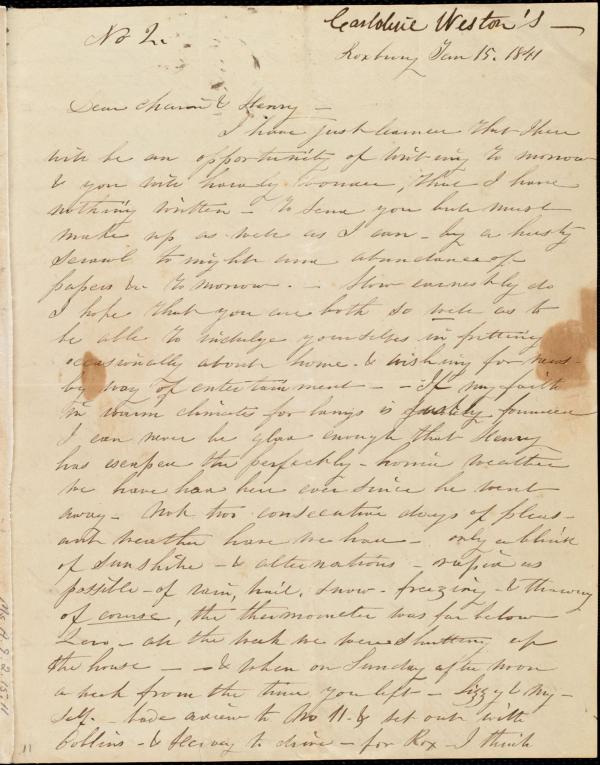 No 2.
Caroline Weston's —
Roxbury Jan 15. 1841
Dear Maria & Henry —
I have just learned that there
will be an opportunity of writing to morrow
& you will hardly wonder, that I have
nothing written — to send you but must
make up as well as I can — by a hasty
scrawl to night and abundance of
papers &c to morrow. — How earnestly do
I hope that you are both so well as to
be able to indulge yourselves in fretting
occasionally about home. & wishing for news —
by way of entertainment — — If my faith
in warm climate for lungs is justly founded
I can never be glad enough that Henry
has escaped the perfectly — horrid weather
we have had here ever since he went
away — Not two consecutive days of pleas-
ant weather have we had — only a blink
of sunshine — & alternations — rapid as
possible — of rain, hail, snow — freezing — & thawing
of course, the thermometer was far below
Zero — all the week we were shutting up
the house — — & when on Sunday afternoon
a week from the time you left — Lizzy & my-
self — bade adieu to No 11 — & set out with
Collins — & Hervey to drive — for Rox — I think
Ms. A. 9. 2. 15. 11
11